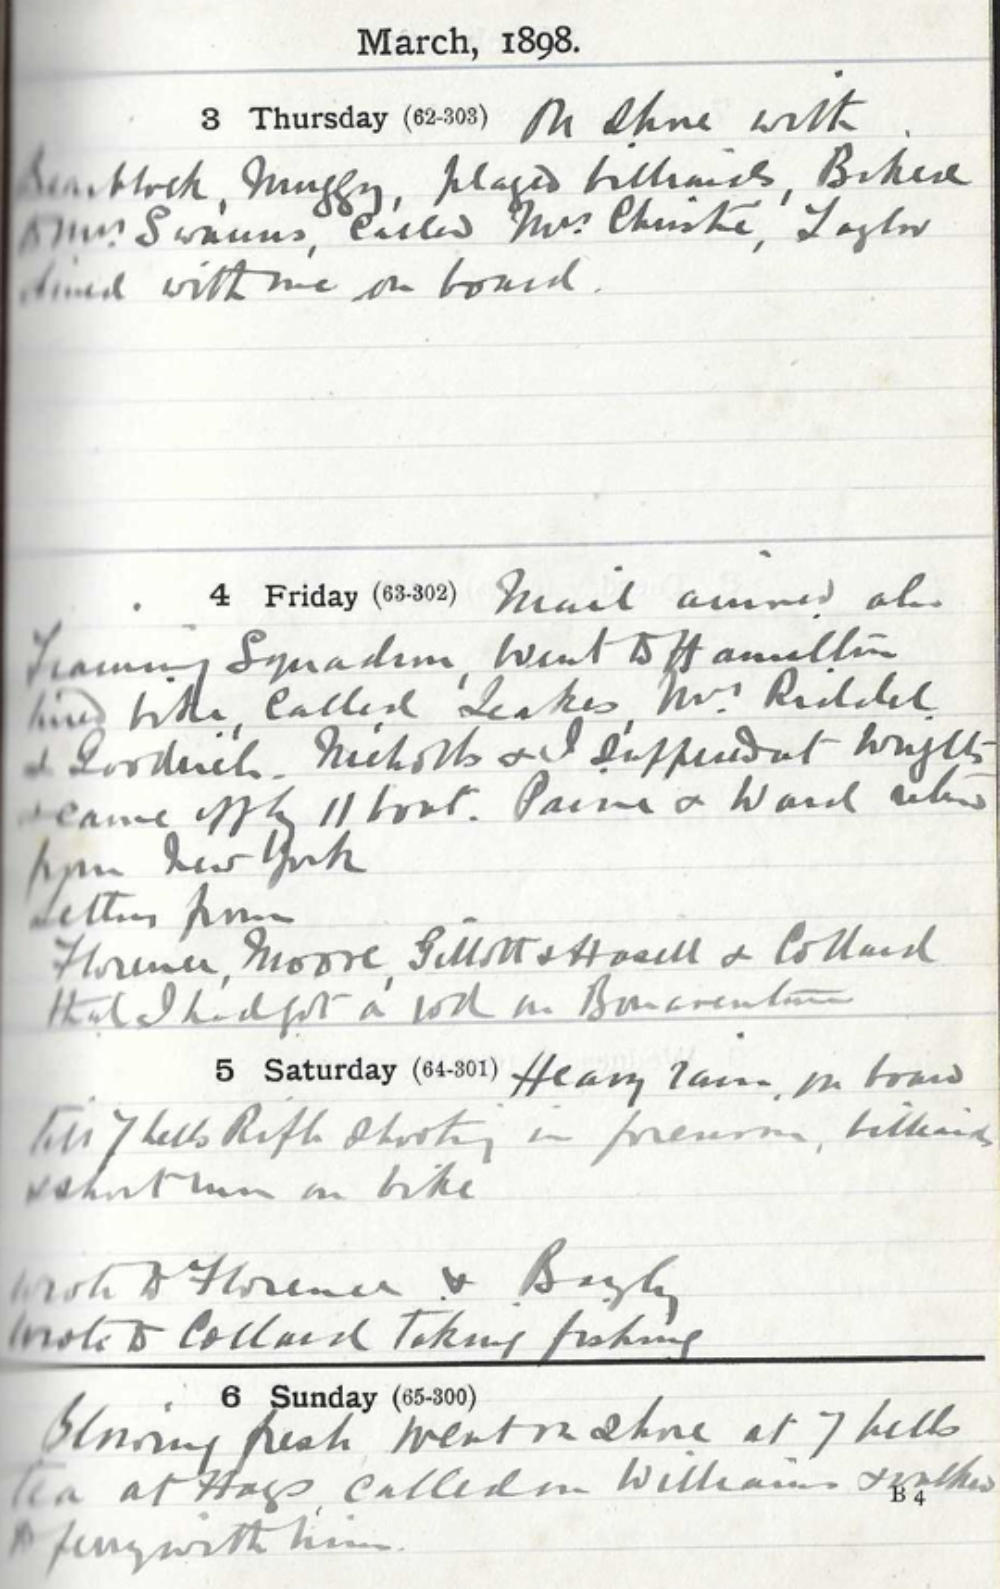 March, 1898.
3 Thursday (62-303) On shore with
Muggy, played billiards, Biked
to Mrs Swanns, called Mrs Christie, Taylor
dined with me on board.
4 Friday (63-302) Mail arrived also
Training Squadron, went to Hamilton
hired bike, called Leakes, Mrs Riddel
& Goodrich. Nicholls & I supped at Wrights
& came off by 11 boat. Paine & Ward
from New York
Letters from
Florence, Moore, Gillott & Hasell & Collard
that I had got a rod on Bonaventure
5 Saturday (64-301) Heavy rain, on board
till 7 bells Rifle shooting in forenoon, billiards
& short run on bike
Wrote to Florence & Bayly
Wrote to Collard taking fishing
6 Sunday (65-300)
Blowing fresh went on shore at 7 bells
tea at Hags, called on Williams & walked
B 4
to ferry with him.